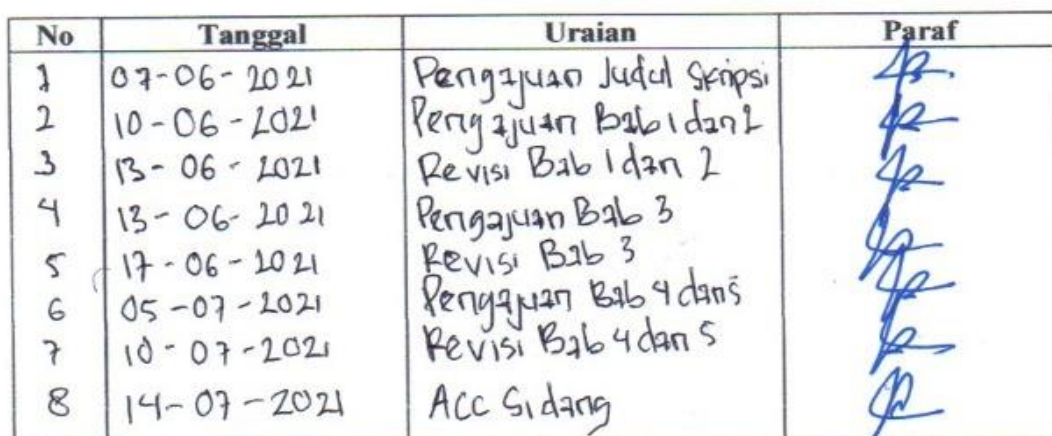 No Tanggal Uraian Paraf
1 07-06-2021 Pengajuan Judul Skripsi
2 10-06-2021 Pengajuan Bab 1 dan 2
3 13-06-2021 Revisi Bab 1 dan 2
4 13-06-2021 Pengajuan Bab 3
5 17-06-2021 Revisi Bab 3
6 05-07-2021 Pengajuan Bab 4 dan 5
7 10-07-2021 Revisi Bab 4 dan 5
8 14-07-2021 Acc Sidang